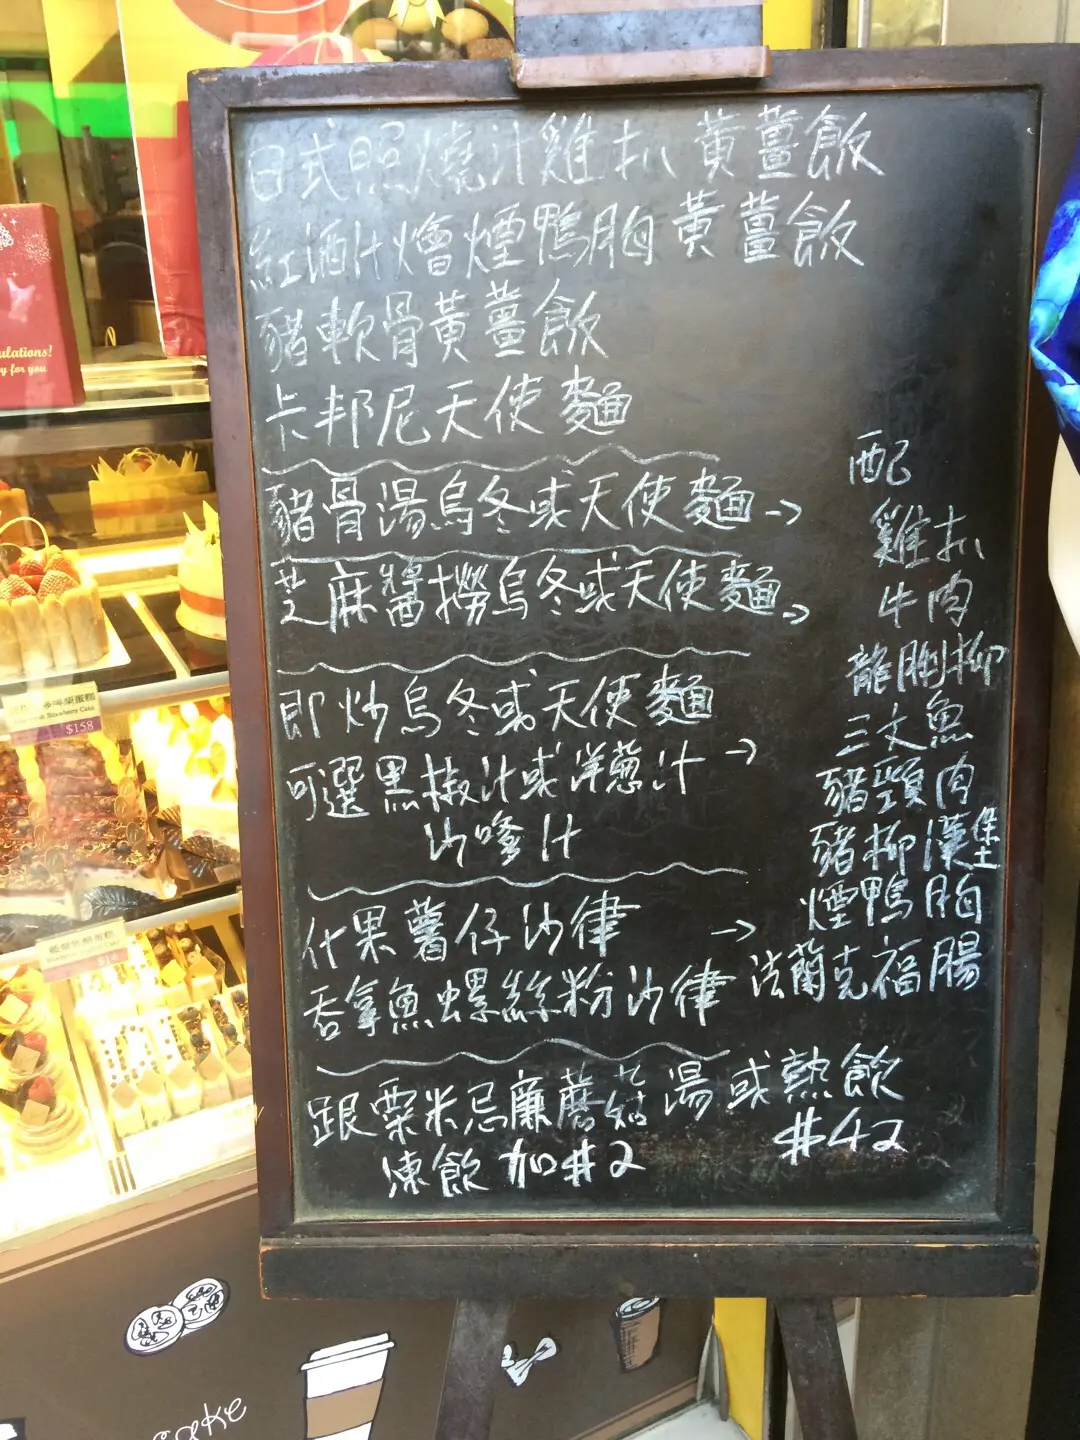 日式照燒汁雞扒黃薑飯
紅酒汁燴煙鴨胸黃薑飯
豬軟骨黃薑飯
卡邦尼天使麵
豬骨湯烏冬或天使麵→
芝麻醬撈烏冬或天使麵→
即炒烏冬或天使麵
可選黑椒汁或洋蔥汁→
沙嗲汁
什果薯仔沙律→
吞拿魚螺絲粉沙律
配
雞扒
牛肉
龍脷柳
三文魚
豬頸肉
豬柳漢堡
煙鴨胸
法蘭克福腸
跟粟米忌廉蘑菇湯或熱飲
凍飲加$2
$42
ulations!
y for you
$158
$14
Cake